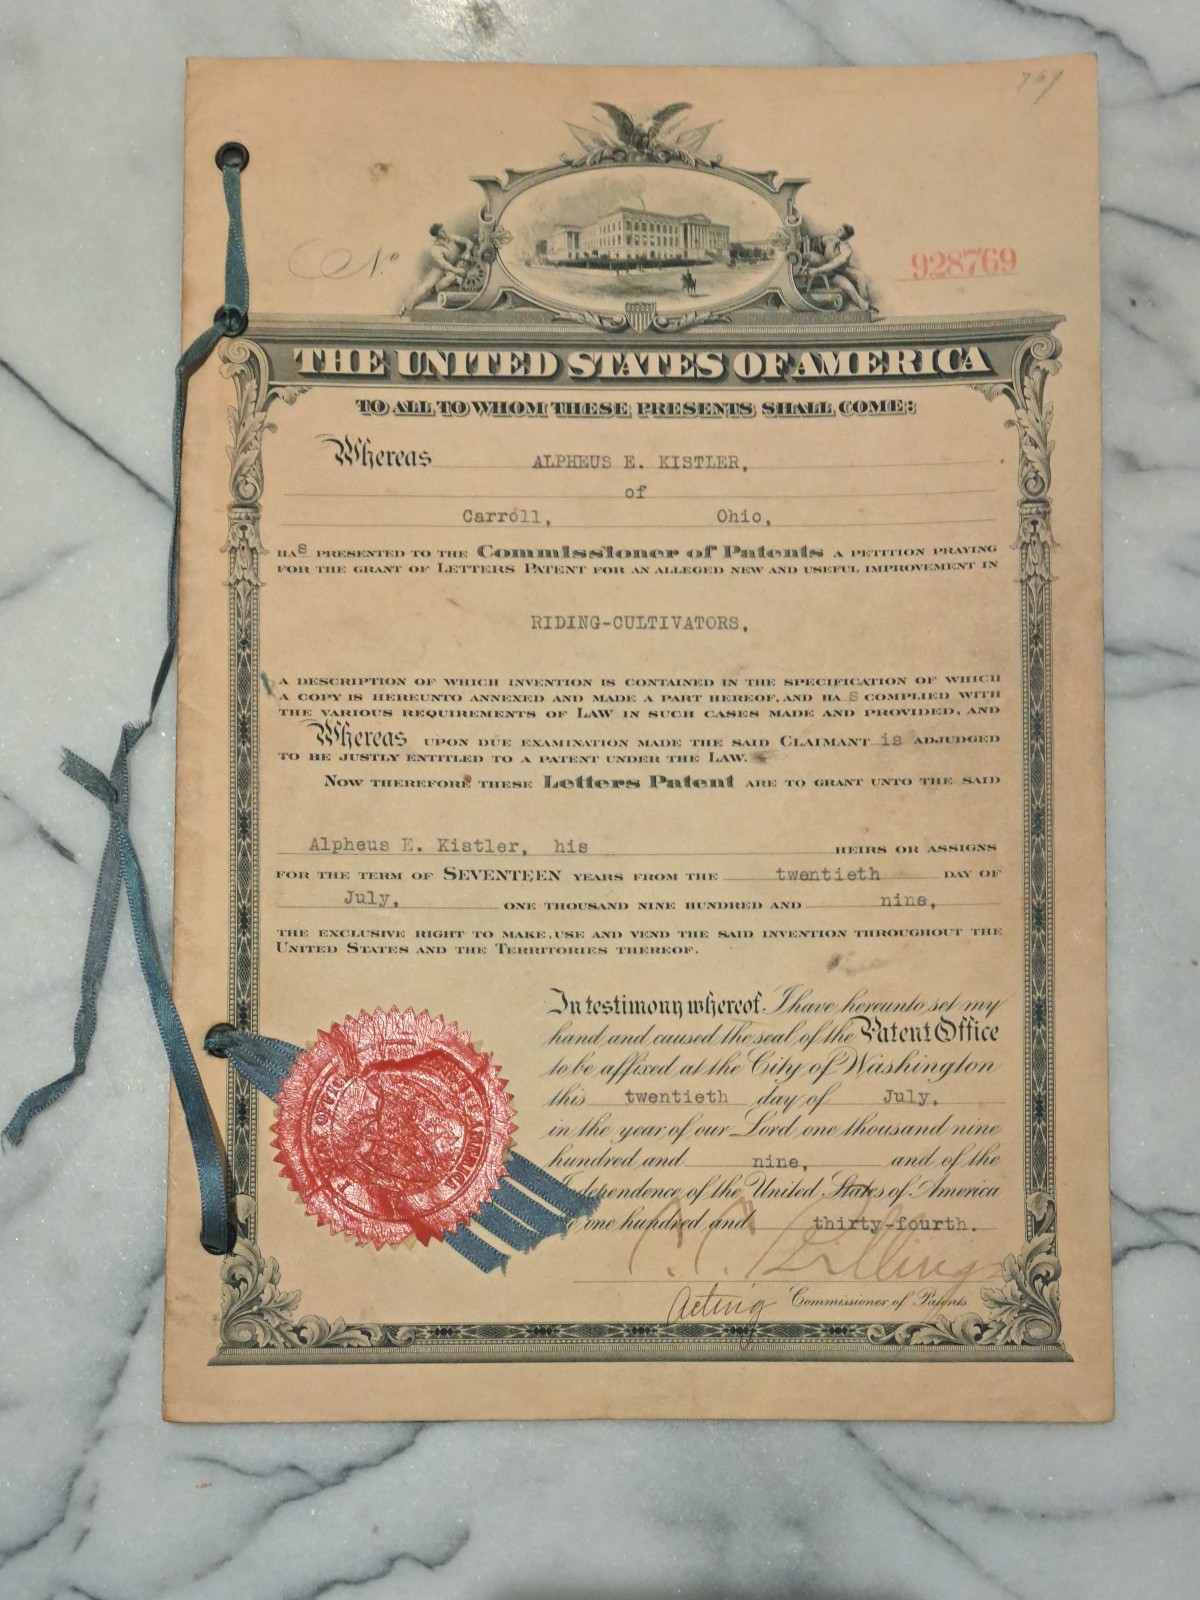 769
No.
928769
THE UNITED STATES OF AMERICA
TO ALL TO WHOM THESE PRESENTS SHALL COME:
Whereas ALPHEUS E. KISTLER,
of
Carroll, Ohio,
HAS PRESENTED TO THE Commissioner of Patents A PETITION PRAYING
FOR THE GRANT OF LETTERS PATENT FOR AN ALLEGED NEW AND USEFUL IMPROVEMENT IN
RIDING-CULTIVATORS.
A DESCRIPTION OF WHICH INVENTION IS CONTAINED IN THE SPECIFICATION OF WHICH
A COPY IS HEREUNTO ANNEXED AND MADE A PART HEREOF, AND HAS COMPLIED WITH
THE VARIOUS REQUIREMENTS OF LAW IN SUCH CASES MADE AND PROVIDED, AND
Whereas UPON DUE EXAMINATION MADE THE SAID CLAIMANT is ADJUDGED
TO BE JUSTLY ENTITLED TO A PATENT UNDER THE LAW.
NOW THEREFORE THESE Letters Patent ARE TO GRANT UNTO THE SAID
Alpheus E. Kistler, his HEIRS OR ASSIGNS
FOR THE TERM OF SEVENTEEN YEARS FROM THE twentieth DAY OF
July, ONE THOUSAND NINE HUNDRED AND nine,
THE EXCLUSIVE RIGHT TO MAKE, USE AND VEND THE SAID INVENTION THROUGHOUT THE
UNITED STATES AND THE TERRITORIES THEREOF.
In testimony whereof I have hereunto set my
hand and caused the seal of the Patent Office
to be affixed at the City of Washington
this twentieth day of July,
in the year of our Lord one thousand nine
hundred and nine, and of the
Independence of the United States of America
one hundred and thirty-fourth.
Billings
Acting Commissioner of Patents